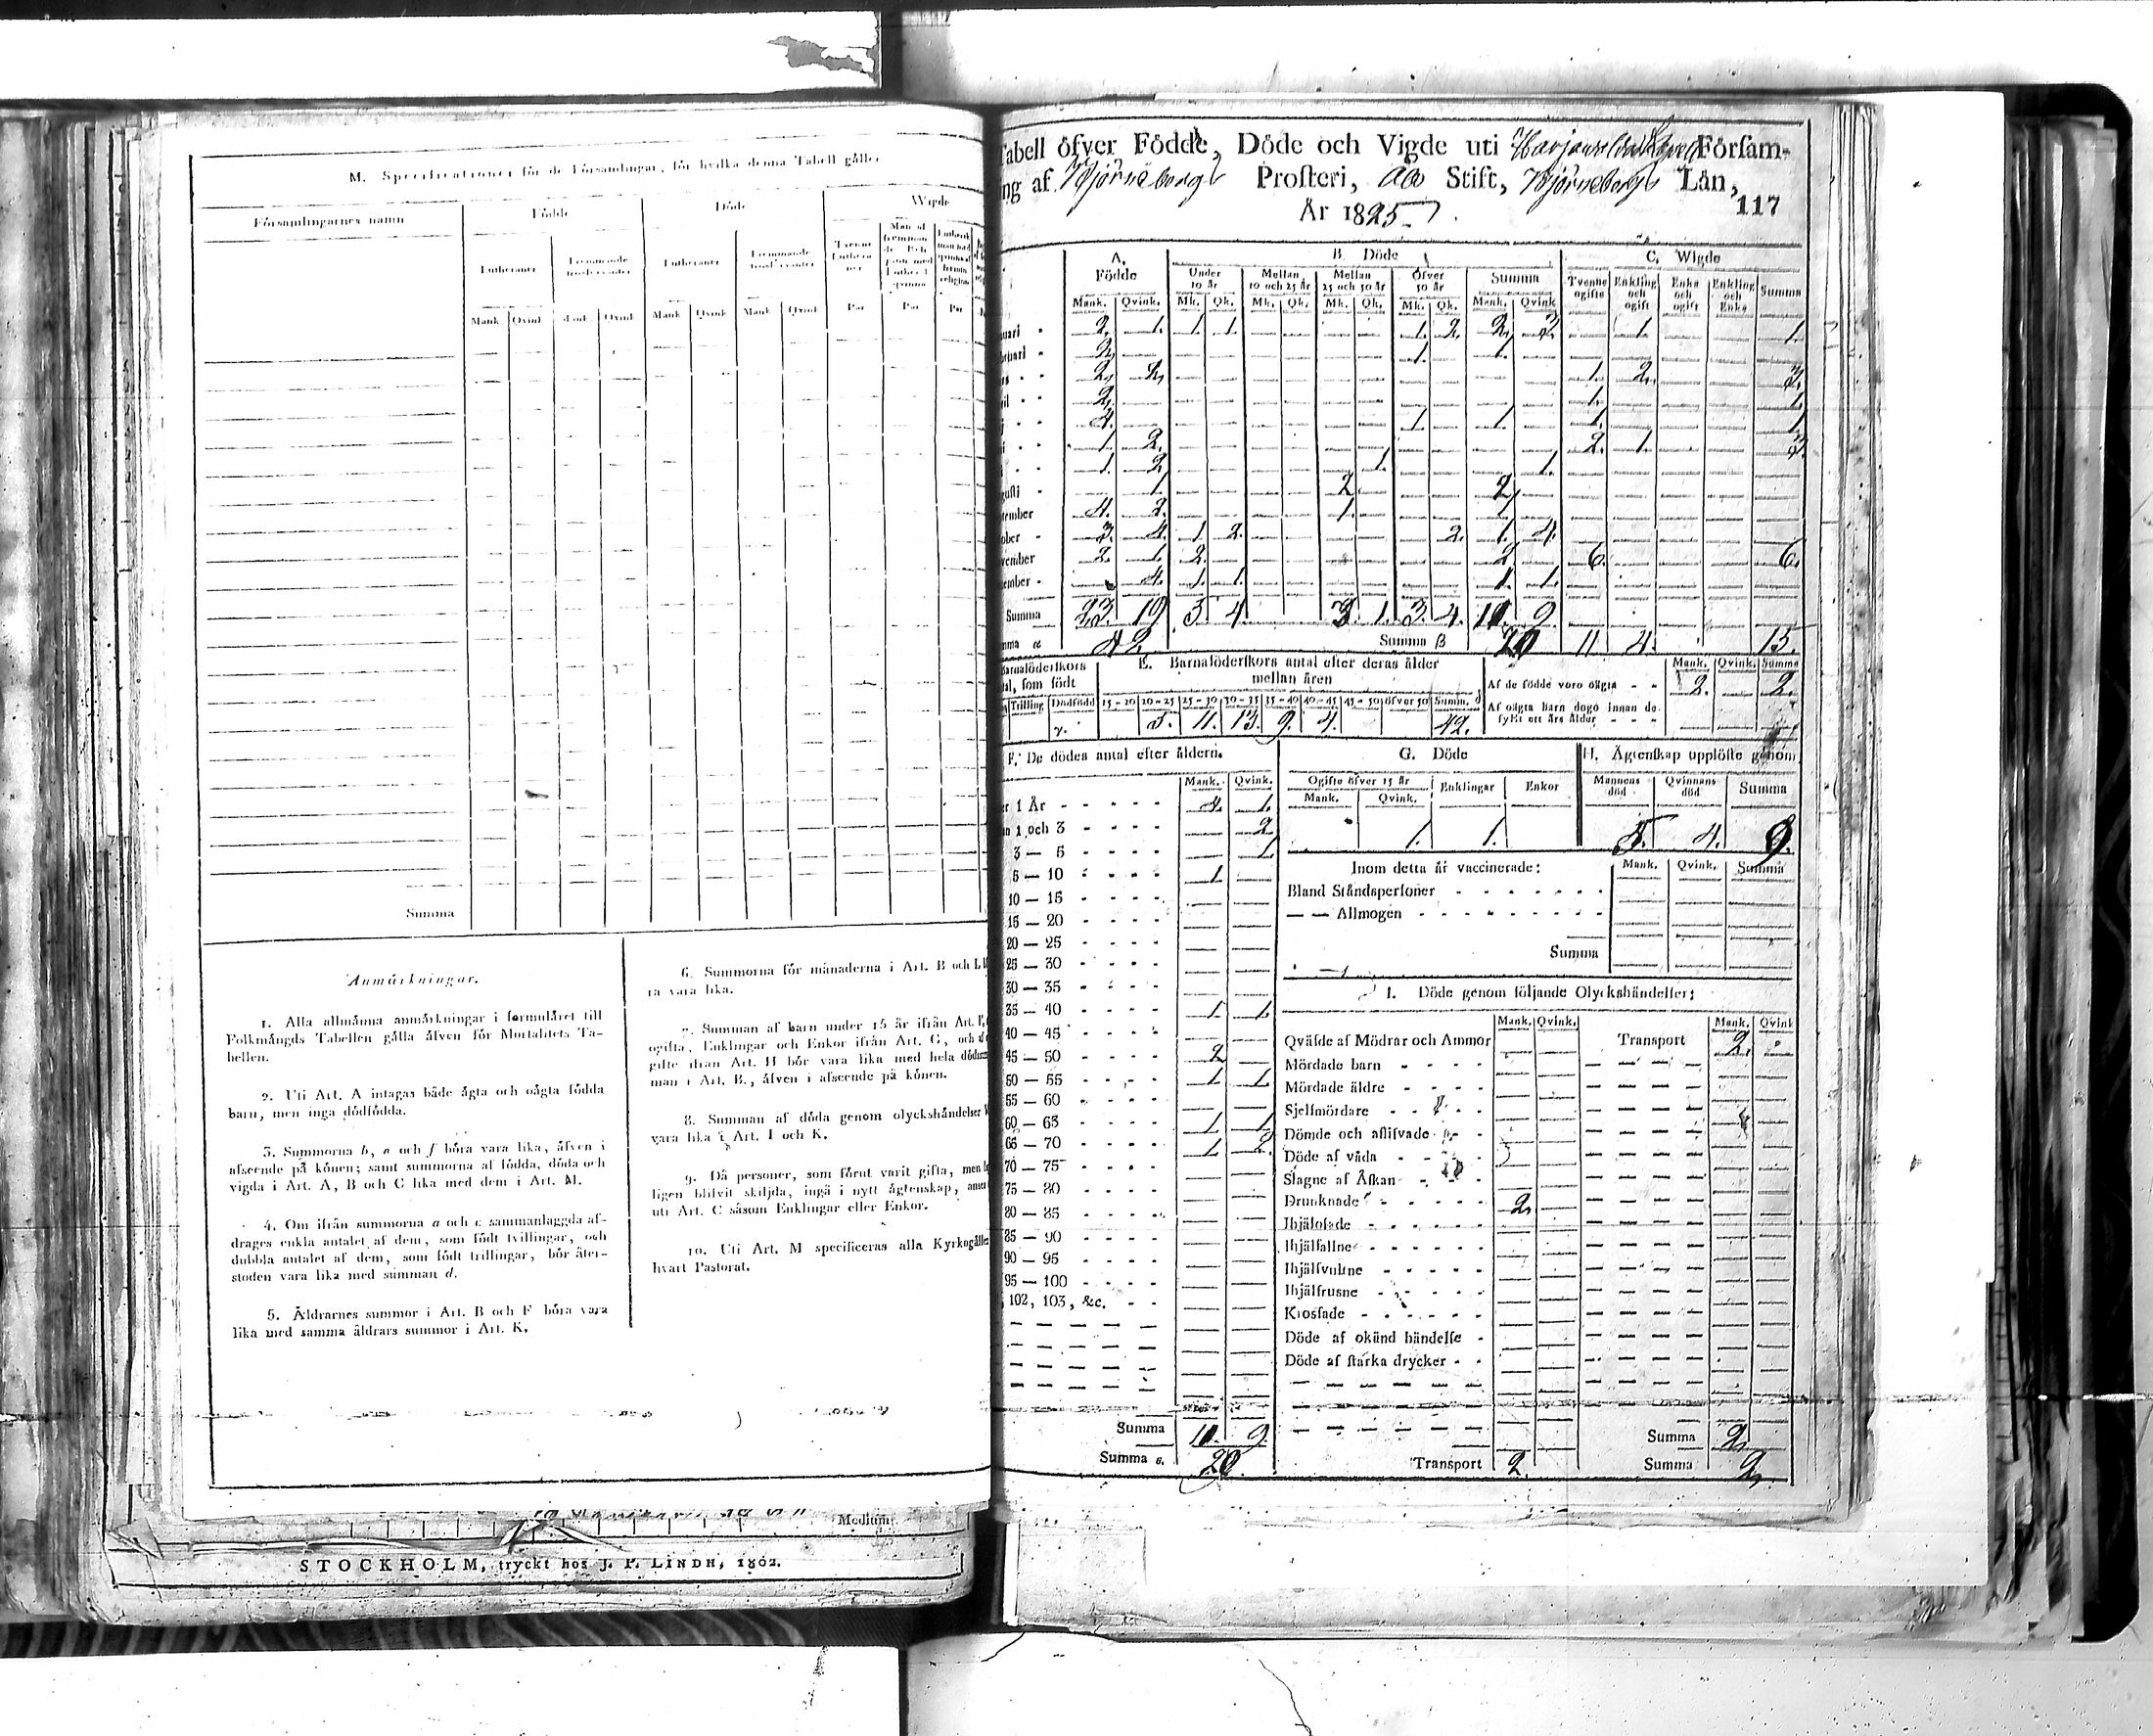 M. Specificationer för de Församlingar, för hvilka denna Tabell gäller
Församlingarnes namn
Födde
Döde
Wigde
Lutheraner
Fremmande
Lutheraner
Fremmande
Mank. Qvink. Mank. Qvink. Mank. Qvink. Mank. Qvink. Par Par Par
Summa
Anmärkningar.
1. Alla allmänna anmärkningar i formuläret till
Folkmängds Tabellen gälla äfven för Mortalitets Ta-
bellen.
2. Uti Art. A intagas både ägta och oägta födda
barn, men inga dödfödda.
3. Summorna b, e och f böra vara lika, äfven i
afseende på könen; samt summorna af födda, döda och
vigda i Art. A, B och C lika med dem i Art. M.
4. Om ifrån summorna a och c sammanlaggda af-
drages enkla antalet af dem, som födt tvillingar, och
dubbla antalet af dem, som födt trillingar, bör åter-
stoden vara lika med summan d.
5. Åldrarnes summor i Art. B och F böra vara
lika med samma åldrars summor i Art. K.
6. Summorna för månaderna i Art. B och L bö
ra vara lika.
7. Summan af barn under 15 år ifrån Art. F,
ogifta, Enklingar och Enkor ifrån Art. G, och af
gifte ifrån Art. H bör vara lika med hela döds
man i Art. B., äfven i afseende på könen.
8. Summan af döda genom olyckshändelser
vara lika i Art. I och K.
9. Då personer, som förut varit gifta, men
ligen blifvit skiljda, ingå i nytt ägtenskap, anses
uti Art. C såsom Enklingar eller Enkor.
10. Uti Art. M specificeras alla Kyrkogäll
hvart Pastorat.
Medium
STOCKHOLM, tryckt hos J. P. LINDH, 1802.
Tabell öfver Födde, Döde och Vigde uti Församling
af Björneborgs Prosteri, Åbo Stift, Björneborgs Län,
År 1825
117
A. Födde
B. Döde
C. Wigde
Under 10 år
Mellan 10 och 25 år
Mellan 25 och 50 år
Öfver 50 år
Summa
Tvenne ogifte
Enkling och ogift
Enka och ogift
Enkling och Enka
Summa
Mank. Qvink. Mk. Qk. Mk. Qk. Mk. Qk. Mk. Qk. Mank. Qvink.
uari 2. 1. 1. 1. 1. 2. 2. 3. 1. 1.
bruari 2. 1. 1.
2. 2. 1. 2. 3.
2. 1. 1.
4. 1. 1. 1. 1.
1. 2. 2. 1. 3.
1. 2. 1. 1.
gusti 1 2 2
tember 4. 2. 1. 1
ober 3. 4. 1. 2. 2. 1. 4.
vember 2. 1. 2. 2 6. 6.
cember 4. 1. 1. 1. 1.
Summa 23. 19 5. 4. 3. 1. 3. 4. 11. 9.
42. Summa ß 20 11 4. 15.
Barnaföderskors
al, som födt
Trilling Dödfödd
E. Barnaföderskors antal efter deras ålder
mellan åren
15-20 20-25 25-30 30-35 35-40 40-45 45-50 öfver 50 Summ. d
5. 11. 13. 9. 4. 42.
Mank. Qvink. Summa
Af de födde voro oägta 2. 2.
Af oägta barn dogo innan de
fyllt ett års ålder
F. De dödes antal efter åldern.
Mank. Qvink.
1 År 4. 1.
1 och 3 2
3 — 5 1.
5 — 10 1
10 — 15
15 — 20
20 — 25
25 — 30
30 — 35
35 — 40 1 1.
40 — 45
45 — 50 2
50 — 55 1 1.
55 — 60
60 — 65 1 1
65 — 70 1 2.
70 — 75
75 — 80
80 — 85
85 — 90
90 — 95
95 — 100
102, 103, &c.
Summa 11. 9.
Summa 20.
G. Döde
Ogifte öfver 15 år
Mank. Qvink.
Enklingar
Enkor
1. 1.
H. Ägtenskap upplöste genom
Mannens död
Qvinnans död
Summa
5. 4. 9.
Inom detta år vaccinerade:
Mank. Qvink. Summa
Bland Ståndspersoner
— — Allmogen
Summa
I. Döde genom följande Olyckshändelser:
Mank. Qvink. Mank. Qvink
Qväfde af Mödrar och Ammor Transport 2.
Mördade barn
Mördade äldre
Sjelfmördare
Dömde och aflifvade
Döde af våda
Slagne af Åskan
Drunknade 2.
Ihjälosade
Ihjälfallne
Ihjälsvultne
Ihjälfrusne
Krossade
Döde af okänd händelse
Döde af starka drycker
Summa 2.
Transport 2. Summa 2.